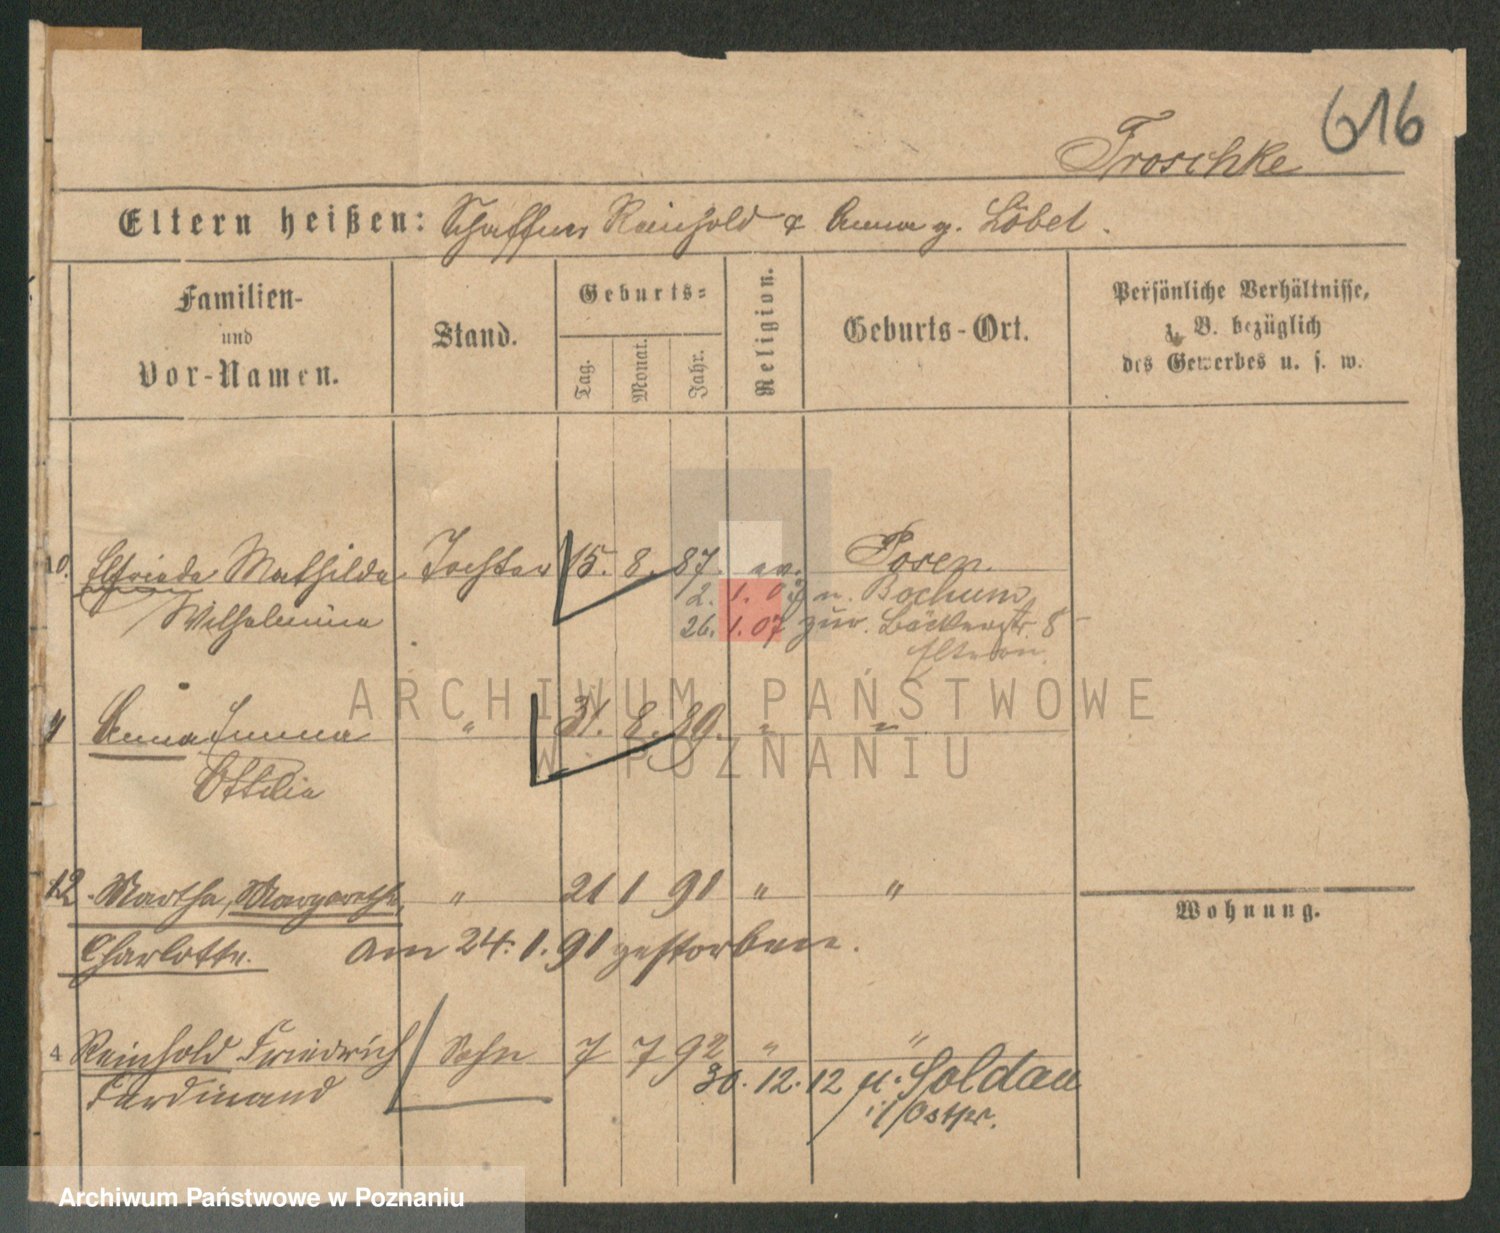 616
Froschke
Eltern heißen: Schaffner Reinhold & Anna g. Löbel.
Familien-
und
Vor-Namen.
Stand.
Geburts-
Tag.
Monat.
Jahr.
Religion.
Geburts-Ort.
Persönliche Verhältnisse,
z. B. bezüglich
des Gewerbes u. s. w.
10. Elfriede Mathilde Tochter 15. 8. 87. ev. Posen.
Wilhelmine
2. 1. 07 n. Bochum
26. 1. 07 zur. Bäckerstr. 8
Eltern.
ARCHIWUM PAŃSTWOWE
W POZNANIU
11 Anna Emma " 31. 8. 89. " "
Ottilie
12 Martha, Margarethe, " 21 1 91 " "
Charlotte. am 24. 1. 91 gestorben.
Wohnung.
4 Reinhold Friedrich Sohn 7 7 92 " "
Ferdinand
30. 12. 12 n. Soldau
i/Ostpr.
Archiwum Państwowe w Poznaniu